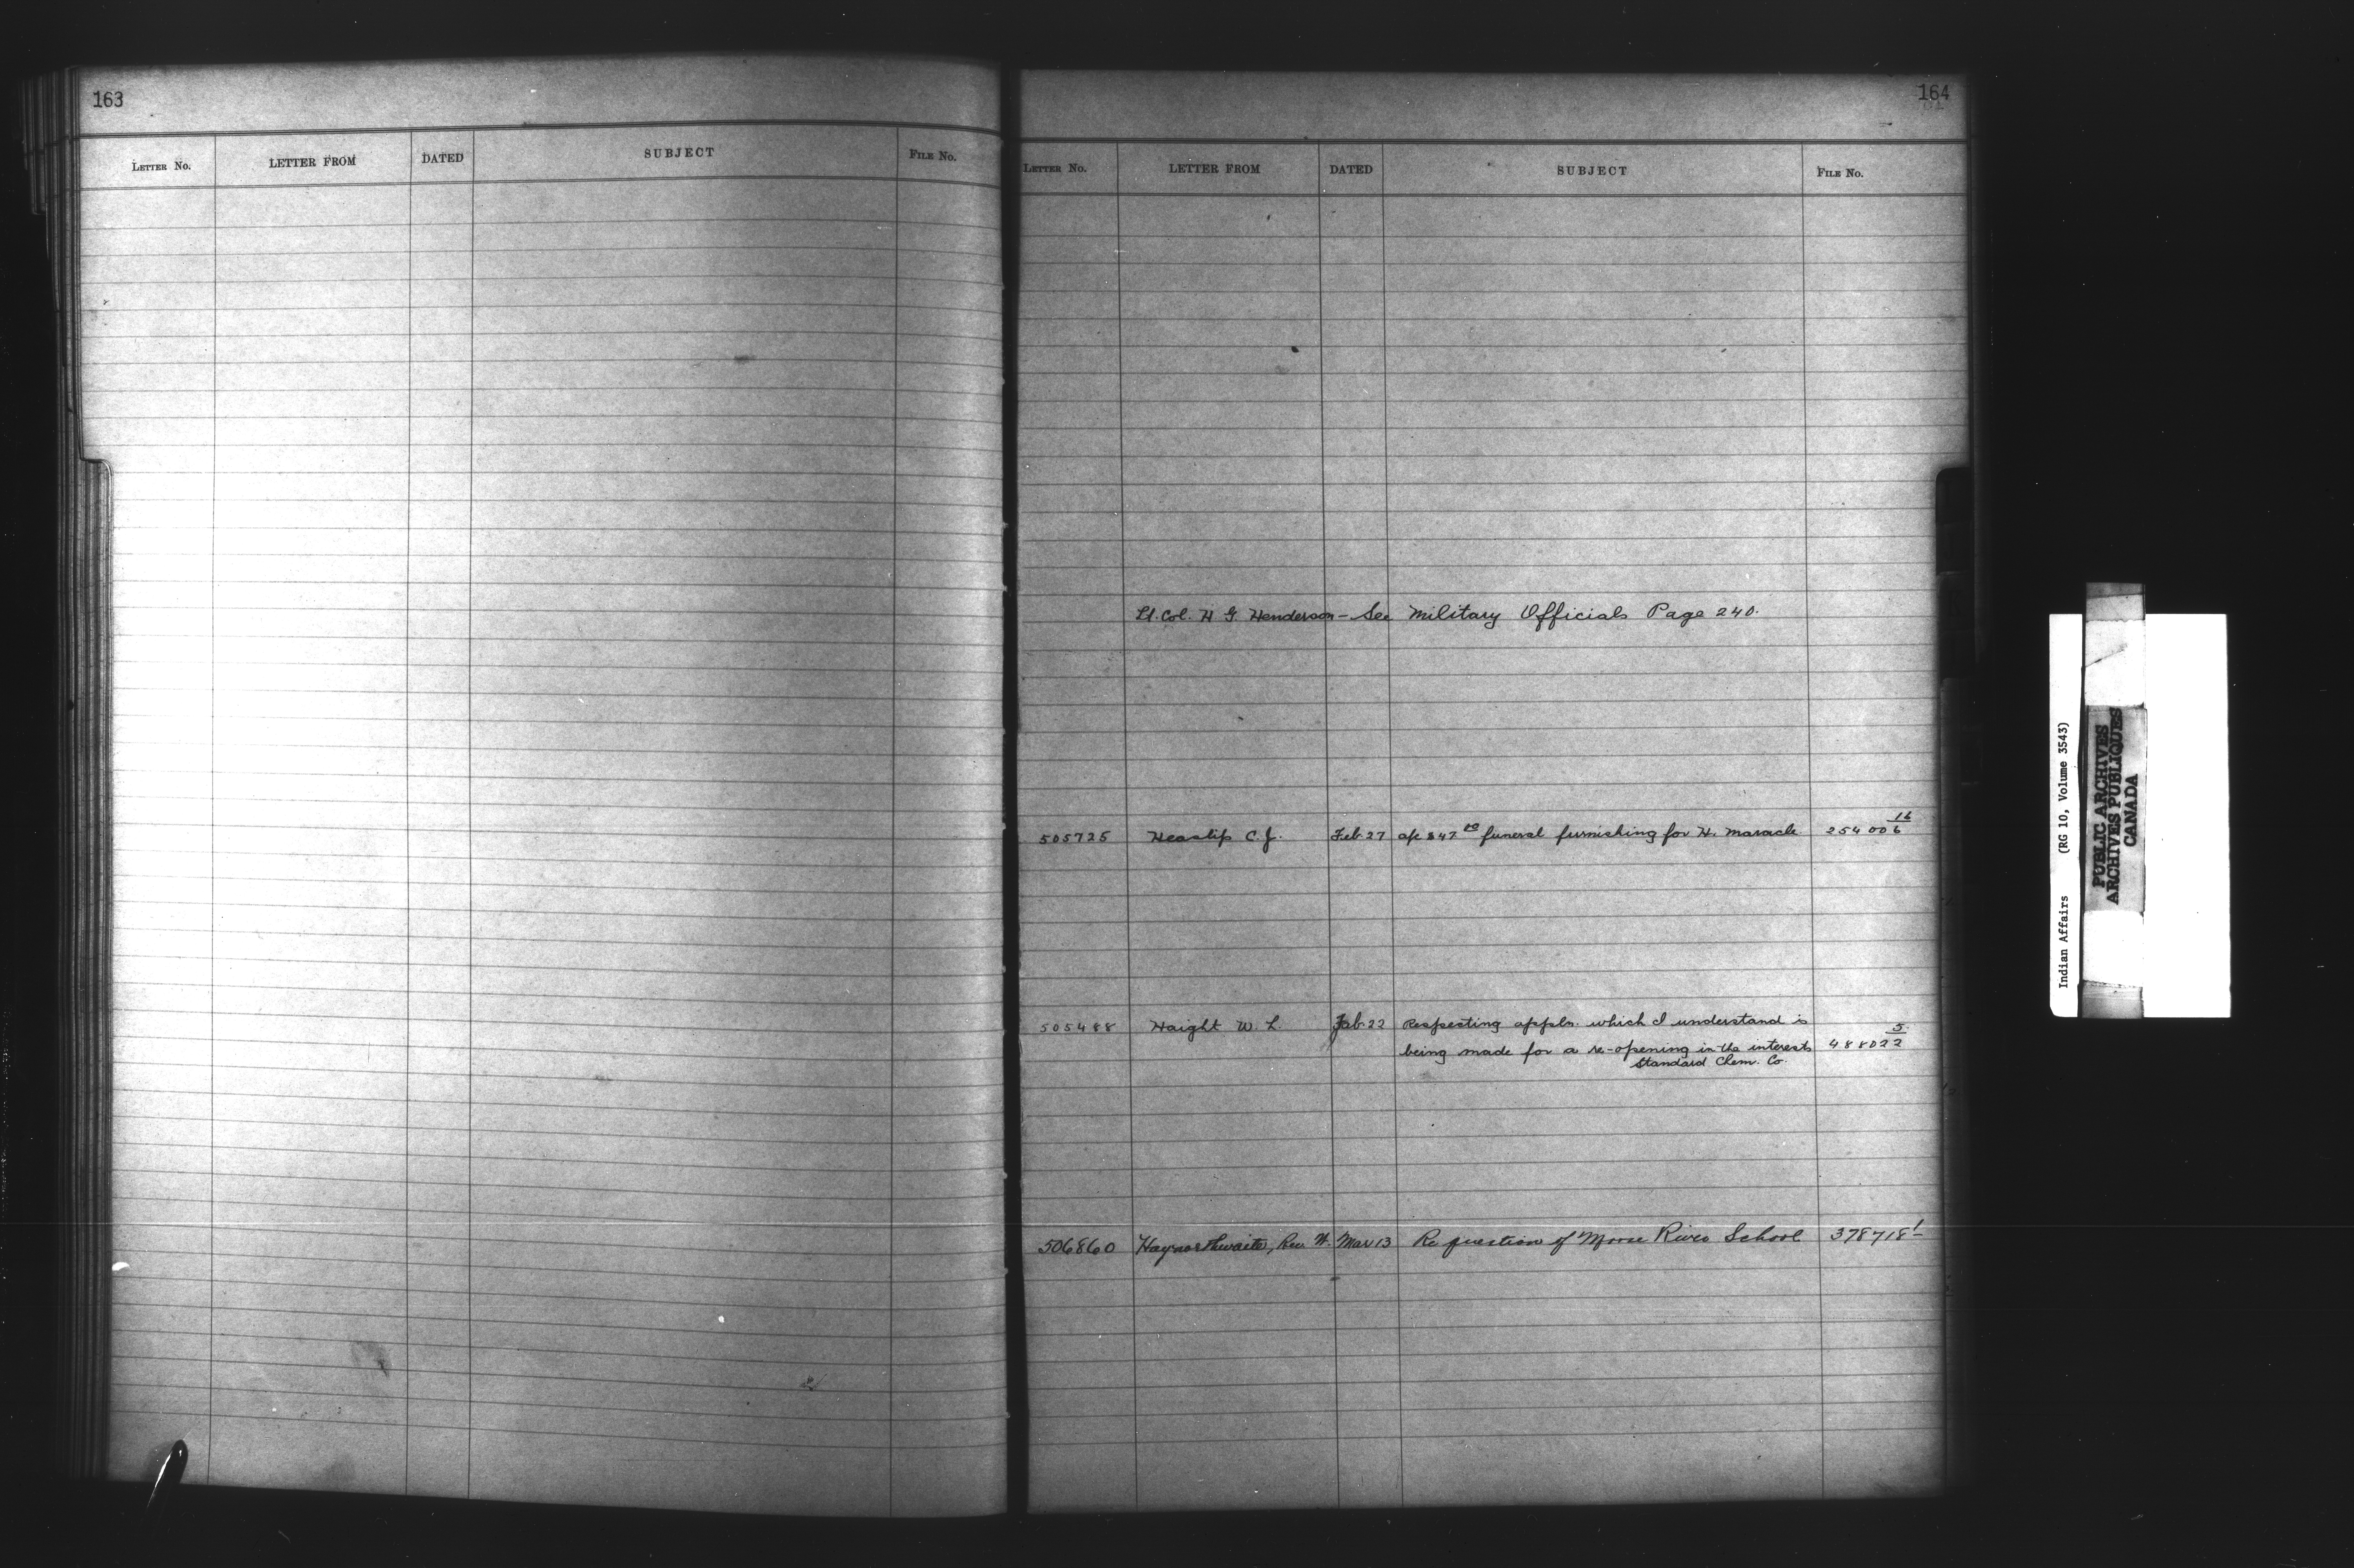 163
LETTER NO. LETTER FROM DATED SUBJECT FILE NO.
164
LETTER NO. LETTER FROM DATED SUBJECT FILE NO.
Lt. Col. H G. Henderson - See Military Officials Page 240.
505725 Heaslip C. J. Feb 27 a/c $47 funeral furnishing for H. Maracle 254006 16
505488 Haight W. L Feb 22 Respecting appln. which I understand is
being made for a re-opening in the interests 488022 5
Standard Chem. Co.
506860 Haynorthwaite, Rev. W. Mar 13 Re question of Moose River School 378718 1
Indian Affairs (RG 10, Volume 3543)
PUBLIC ARCHIVES
ARCHIVES PUBLIQUES
CANADA